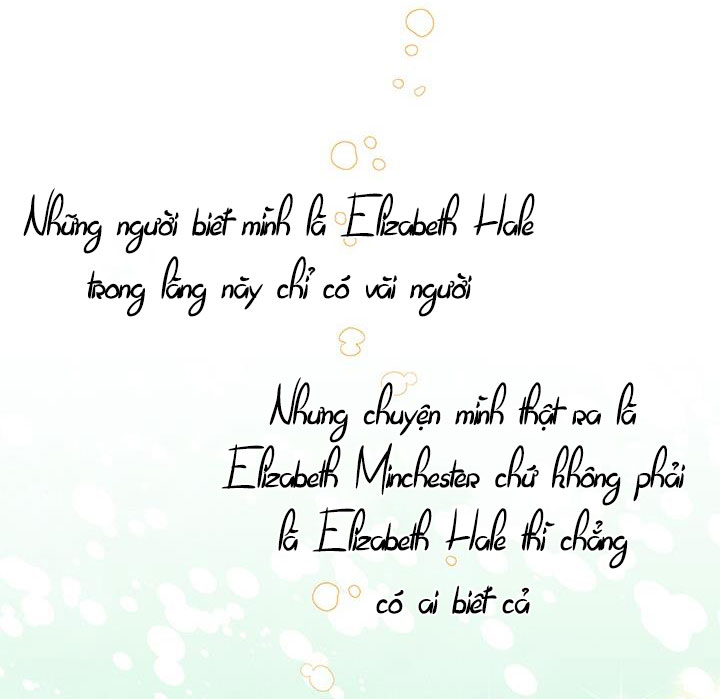 Những người biết mình là Elizabeth Hale
trong làng này chỉ có vài người
Nhưng chuyện mình thật ra là
Elizabeth Minchester chứ không phải
là Elizabeth Hale thì chẳng
có ai biết cả